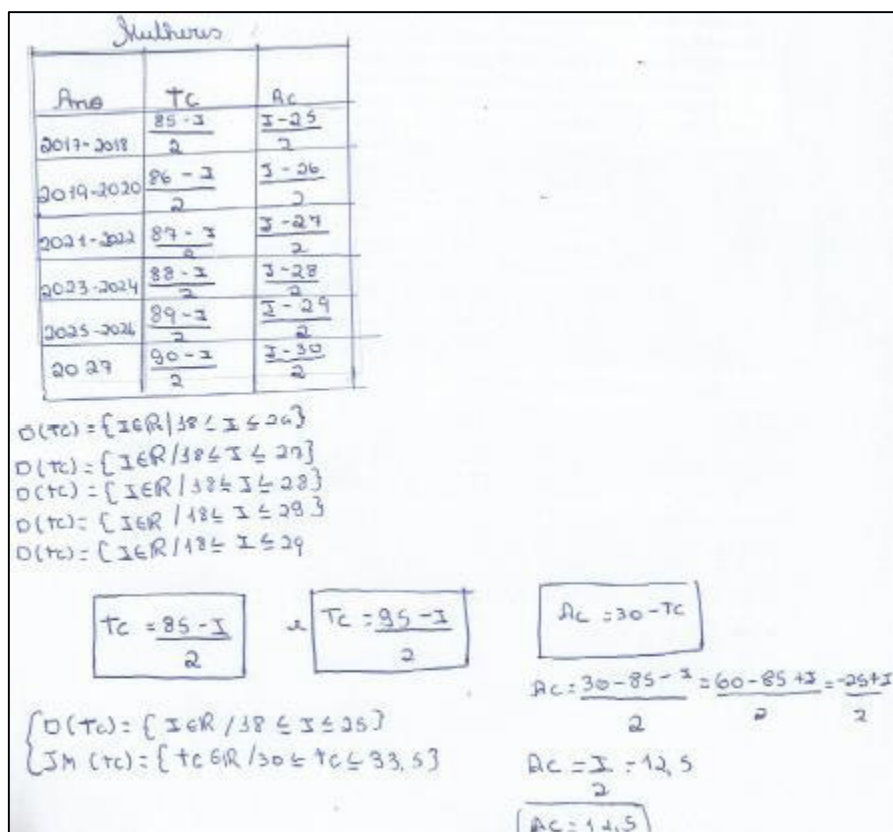 Mulheres
Ano TC Ac
2017-2018 85-I/2 I-25/2
2019-2020 86-I/2 I-26/2
2021-2022 87-I/2 I-27/2
2023-2024 88-I/2 I-28/2
2025-2026 89-I/2 I-29/2
2027 90-I/2 I-30/2
D(TC)={I∈R/18≤I≤26}
D(TC)={I∈R/18≤I≤27}
D(TC)={I∈R/18≤I≤28}
D(TC)={I∈R/18≤I≤29}
D(TC)={I∈R/18≤I≤29
TC=85-I/2 e TC=95-I/2 Ac=30-TC
Ac=30-85-I/2=60-85+I/2=-25+I/2
{D(TC)={I∈R/18≤I≤25}
{IM(TC)={TC∈R/30≤TC≤33,5}
Ac=I/2=12,5
Ac=12,5